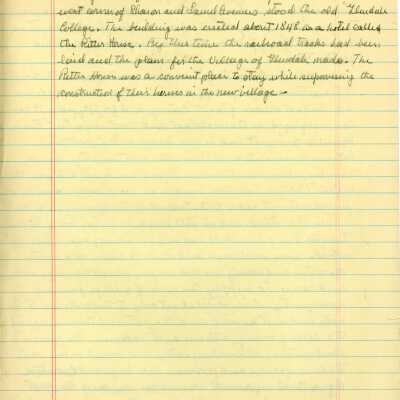 west corner of Sharon and Laurel Avenues, stood the old Glendale
College. The building was erected about 1848 as a hotel called
the Ritter House. By this time the railroad tracks had been
laid and the plans for the Village of Glendale made. The
Ritter House was a convient place to stay while supervising the
construction of their homes in the new village.